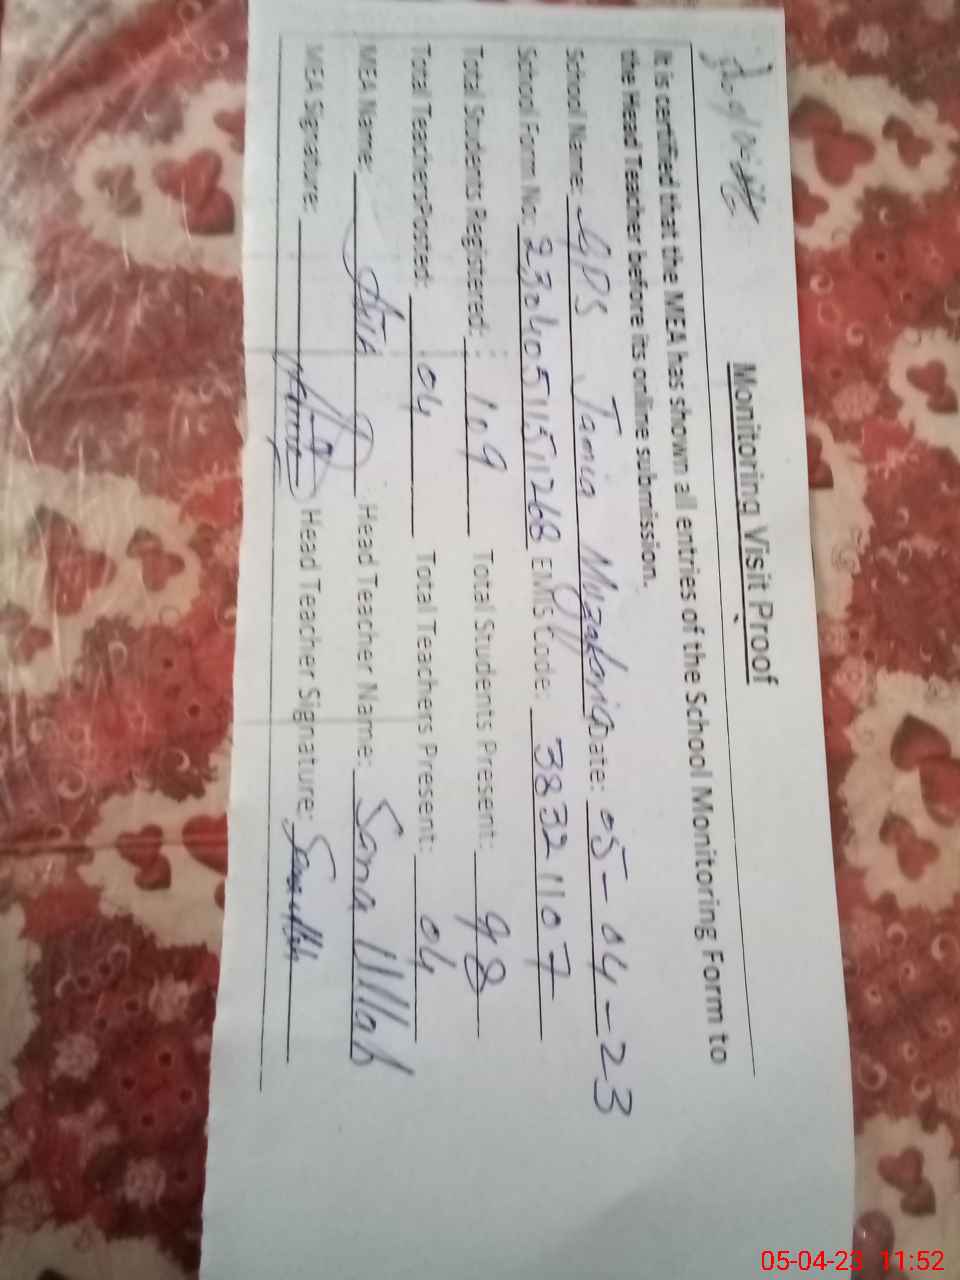 Monitoring Visit Proof
It is certified that the MEA has shown all entries of the School Monitoring Form to
the Head Teacher before its online submission.
School Name: GPS Jamia Muzafaria Date: 05-04-23
School Form No: 2304051151268 EMIS Code: 38321107
Total Students Registered: 109 Total Students Present: 98
Total Teachers Posted: 04 Total Teachers Present: 04
MEA Name: Head Teacher Name: Sana Ullah
MEA Signature: Head Teacher Signature: Sanaullah
05-04-23 11:52